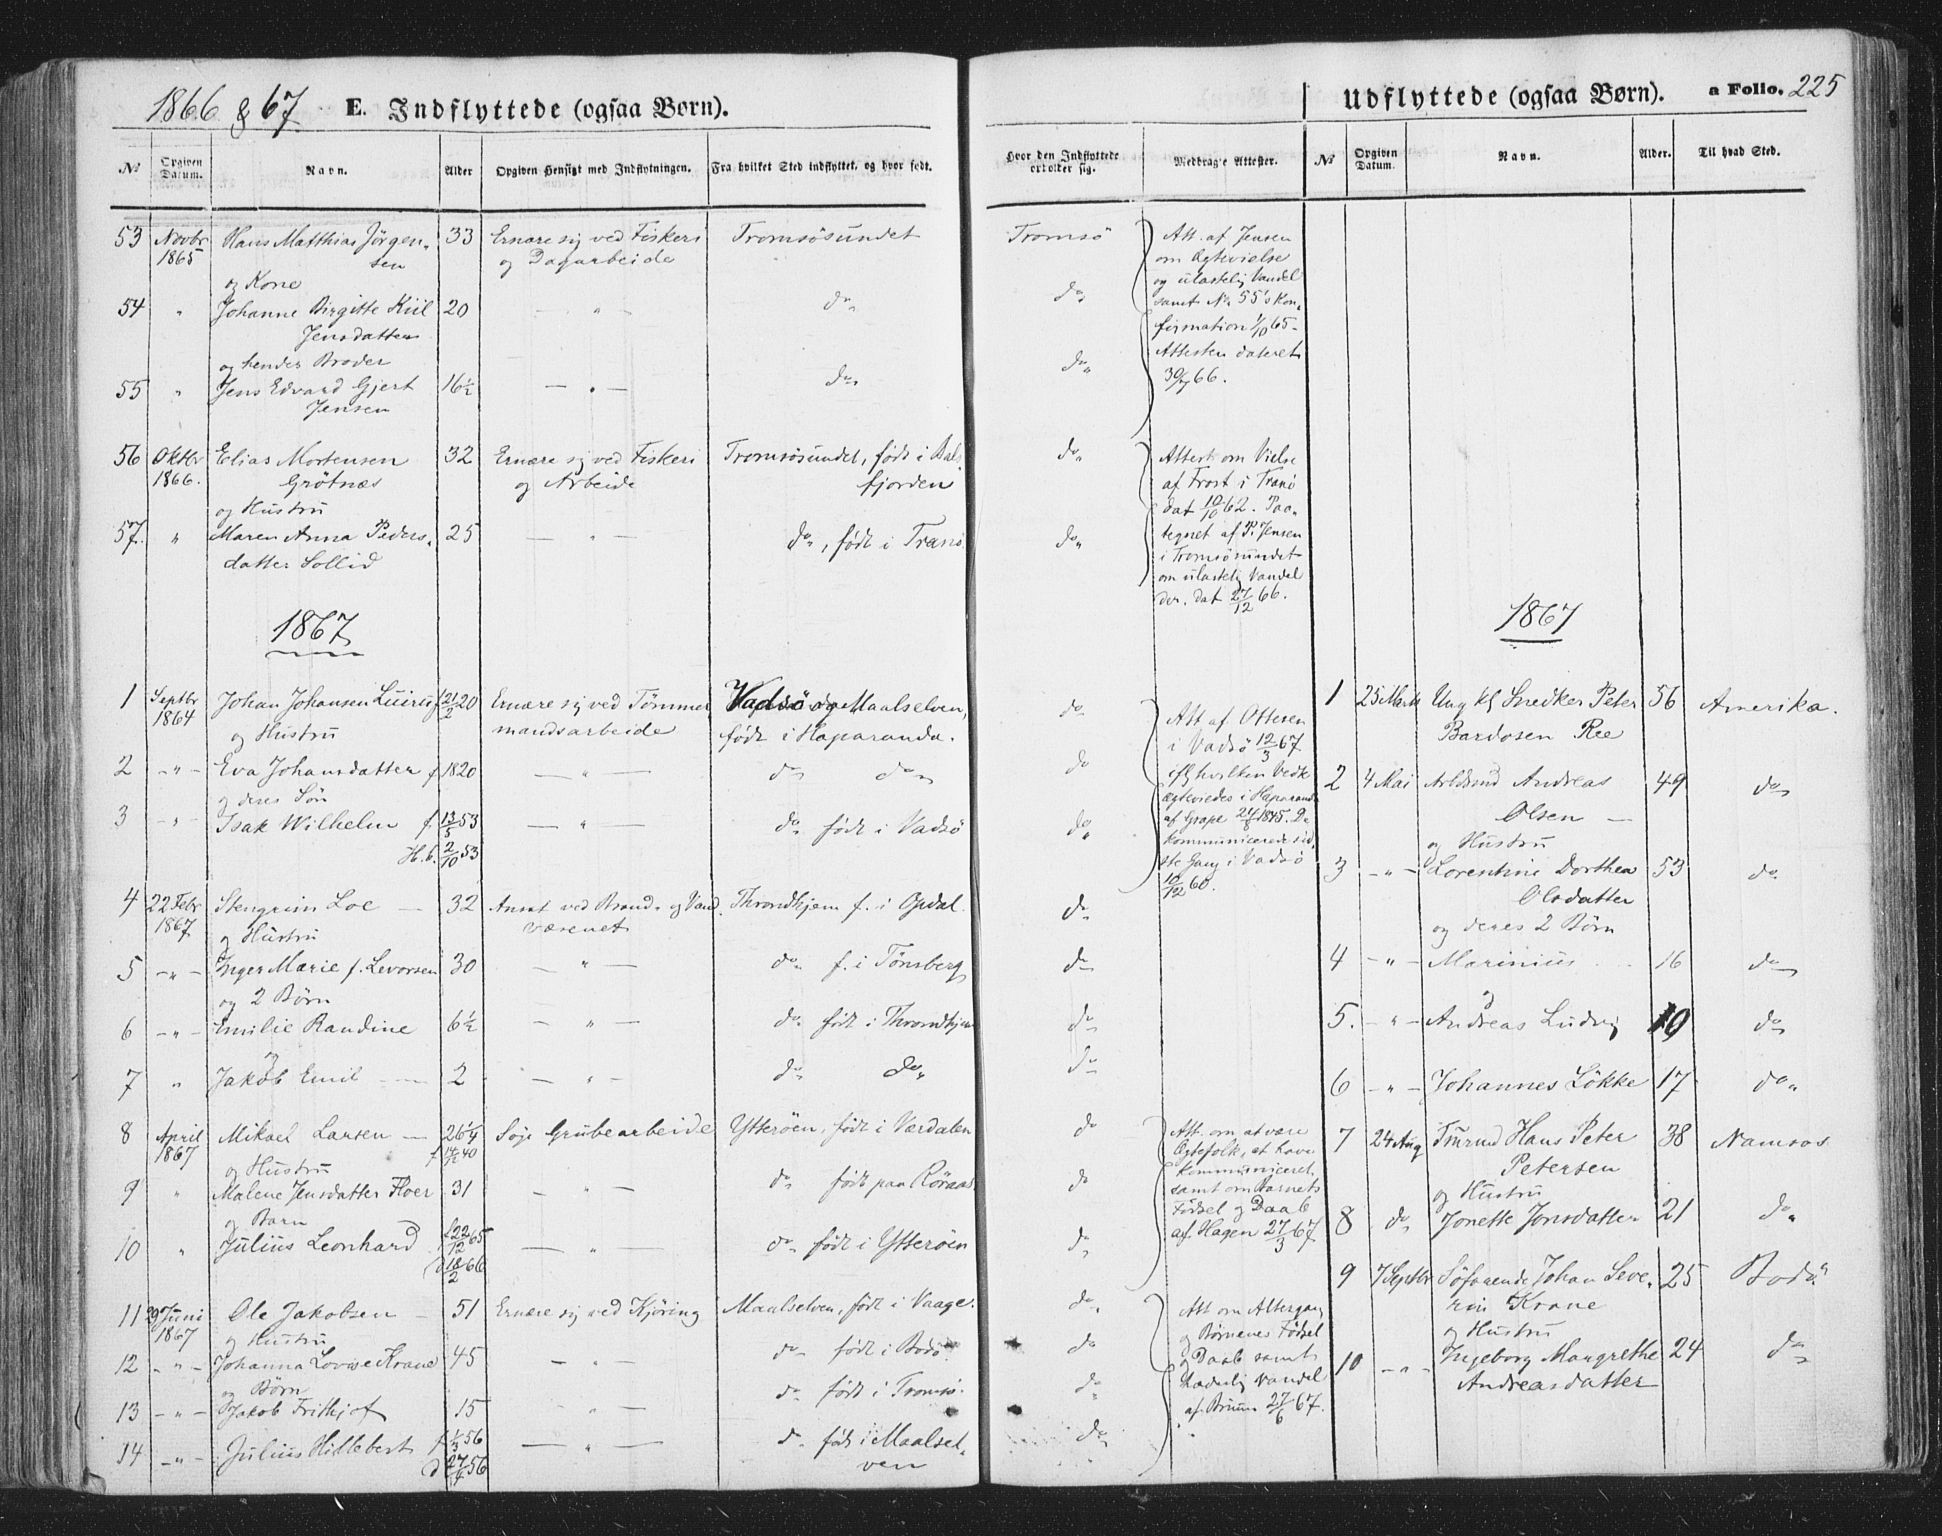 1866 & 67 E. Indflyttede (ogsaa Børn).
Udflyttede (ogsaa Børn). a Folio. 225
№ Opgiven Datum. Navn. Alder Opgiven Hensigt med Indflytningen. Fra hvilket Sted indflyttet, og hvor født.
Hvor den Indflyttede opholder sig. Medbragte Attester. № Opgiven Datum. Navn. Alder. Til hvad Sted.
53 Novbr 1865 Hans Matthias Jörgen-
sen 33 Ernære sig ved Fiskeri
og Dagarbeide Tromsösundet Tromsö
og Kone
54 " Johanne Birgitte Kiil
Jensdatter 20 — " — do do
og hendes Broder
55 " Jens Edvard Gjert
Jensen 16½ — " — do do
Att. af Jensen
om Ægtevielse
og ulastelig Vandel
samt No 55's Kon-
firmation 1/10 65 -
Attesten dateret
30/7 66.
56 Oktbr 1866. Elias Mortensen
Grötnæs 32 Ernære sig ved Fiskeri
og Arbeide Tromsösundet, födt i Bals-
fjorden do
og Hustru
57. " Maren Anna Peders-
datter Sollid 25 — " — do, födt i Tranö do
Attest om Vielse
af Frost i Tranö
dat 10/10 62. Paa-
tegnet af P. Jensen
i Tromsösundet
om ulastelig Vandel
der. dat 27/12 66.
1867
1 Septbr 1864 Johan Johansen f 21/2 20 Ernære sig ved Tömmer
mandsarbeide Vadsö og Maalselven,
födt i Haparanda. do
og Hustru
2 — " — Eva Johansdatter f 1820 — " — do do do
og deres Sön
3 — " — Isak Wilhelm f. 13/5 53 — " — do födt i Vadsö do
H.b. 2/10 53
Att af Ottesen
i Vadsö 12/3 67
hvilken Vedk
ægteviedes i Haparanda
af Grape 24/8 1845. De
kommunicerede sid-
ste Gang i Vadsö
10/12 60.
4 22 Febr 1867 Stengrim Loe — 32 Ansat ved Brand- og Vand-
væsenet Throndhjem f. i Opdal. do
og Hustru
5 — " — Inger Marie f. Levorsen 30 — " — do f. i Tönsberg do
og 2 Börn
6 — " — Emilie Randine 6½ — " — do födt i Throndhjem do
og
7 " Jakob Emil 2 — " — do do do
8 April 1867 Mikael Larsen — 26¼ Söge Grubearbeide Ytteröen, födt i Værdalen do
og Hustru
9 " Malene Jensdatter 31 — " — do födt paa Röraas do
og Barn
10 " Julius Leonhard f 22/12 65 — " — do födt i Ytteröen do
d 18/2 66
Att. om at være
Ægtefolk, at have
kommuniceret,
samt om Barnets
Födsel og Daab
af Hagen 27/3 67
11 29 Juni 1867 Ole Jakobsen — 51 Ernære sig ved Kjöring Maalselven, födt i Vaage. do
og Hustru
12 — " — Johanna Lovise Krane 45 — " — do födt i Bodö do
og Börn
13 — " — Jakob Frithjof 15 — " — do födt i Tromsö do
14 — " — Julius Hillebert f 1/3 56 — " — do födt i Maalsel-
ven do
d 27/4 56
Att om Altergang
og Börnenes Födsel
og Daab samt
hæderlig Vandel
af Bruun 27/6 67.
1867
1 25 Marts Ung kl Snedker Peter
Bardosen Ree 56 Amerika.
2 4 Mai Arbdsmd Andreas
Olsen — 49 do
og Hustru
3 — " — Lorentine Dorthea
Olsdatter 53 do
og deres 2 Börn
4 — " — Marinius 16 do
og
5. — " — Andreas Ludvig 10 do
6 — " — Johannes Lökke 17 do
7 24 Aug Tmrmd Hans Peter
Petersen 38 Namsos
og Hustru
8 do Jonette Jonsdatter 21 do
9 7 Septbr Söfarende Johan Seve-
rin Krane 25 Bodö
og Hustru
10 — " — Ingeborg Margrethe
Andreasdatter 24 do